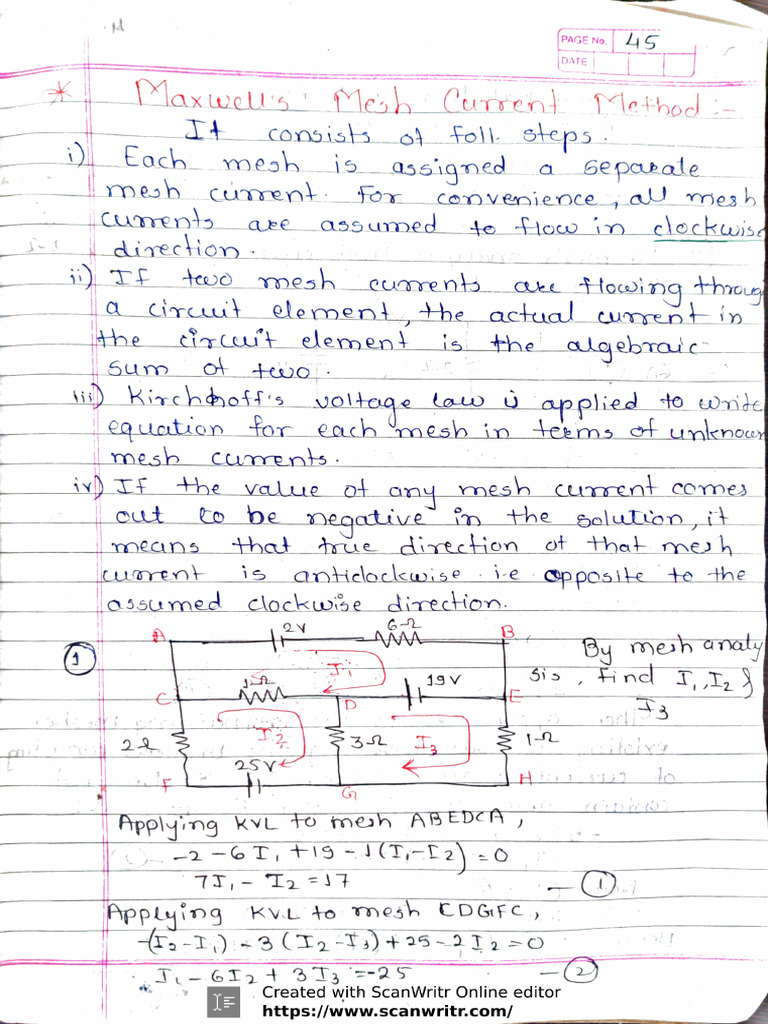 PAGE No. 45
DATE
* Maxwell's Mesh Current Method :-
It consists of foll. steps.
i) Each mesh is assigned a separate
mesh current. For convenience, all mesh
currents are assumed to flow in clockwise
direction.
ii) If two mesh currents are flowing throug
a circuit element, the actual current in
the circuit element is the algebraic
sum of two.
iii) Kirchhoff's voltage law is applied to write
equation for each mesh in terms of unknown
mesh currents.
iv) If the value of any mesh current comes
out to be negative in the solution, it
means that true direction of that mesh
current is anticlockwise i.e opposite to the
assumed clockwise direction.
1
A 2V 6Ω B
By mesh analy
sis, find I1, I2 &
I3
C 1Ω I1 D 19V E
2Ω I2 3Ω I3 1Ω
25V
F G H
Applying KVL to mesh ABEDCA,
-2-6I1+19-1(I1-I2)=0
7I1-I2=17 -1
Applying KVL to mesh CDGFC,
-(I2-I1)-3(I2-I3)+25-2I2=0
I1-6I2+3I3=-25 -2
Created with ScanWritr Online editor
https://www.scanwritr.com/